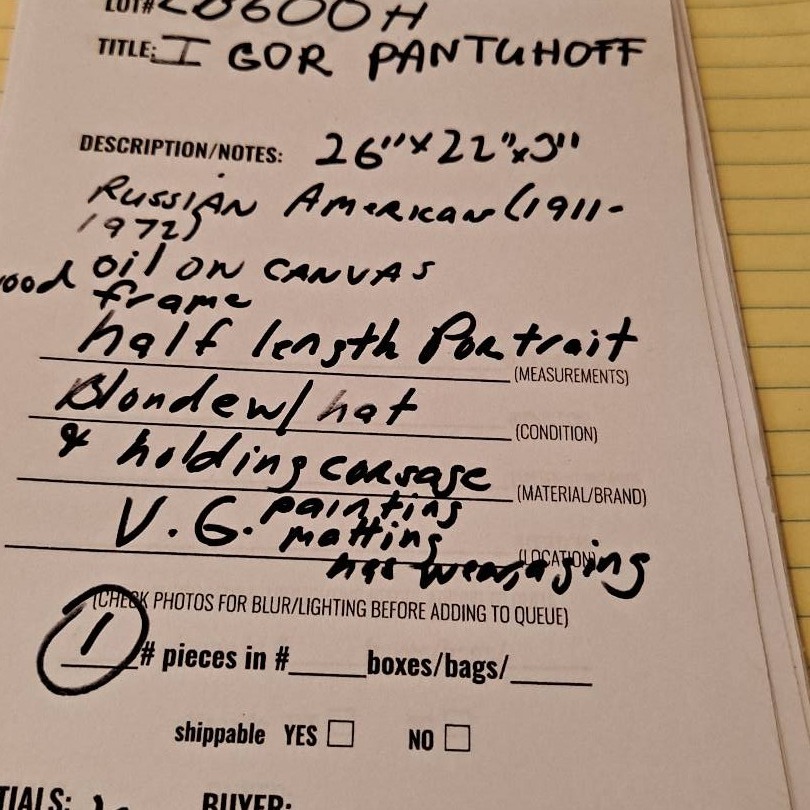 LOT# 28600H
TITLE: IGOR PANTUHOFF
DESCRIPTION/NOTES: 26"x22"x3"
RUSSIAN AMERICAN (1911-
1972)
oil ON CANVAS
ood frame
half length Portrait
(MEASUREMENTS)
Blonde w/ hat
(CONDITION)
& holding corsage
(MATERIAL/BRAND)
V.G. painting
matting
(LOCATION)
has wear, aging
(CHECK PHOTOS FOR BLUR/LIGHTING BEFORE ADDING TO QUEUE)
1 # pieces in #____ boxes/bags/____
shippable YES ☐ NO ☐
TIALS: BUYER: